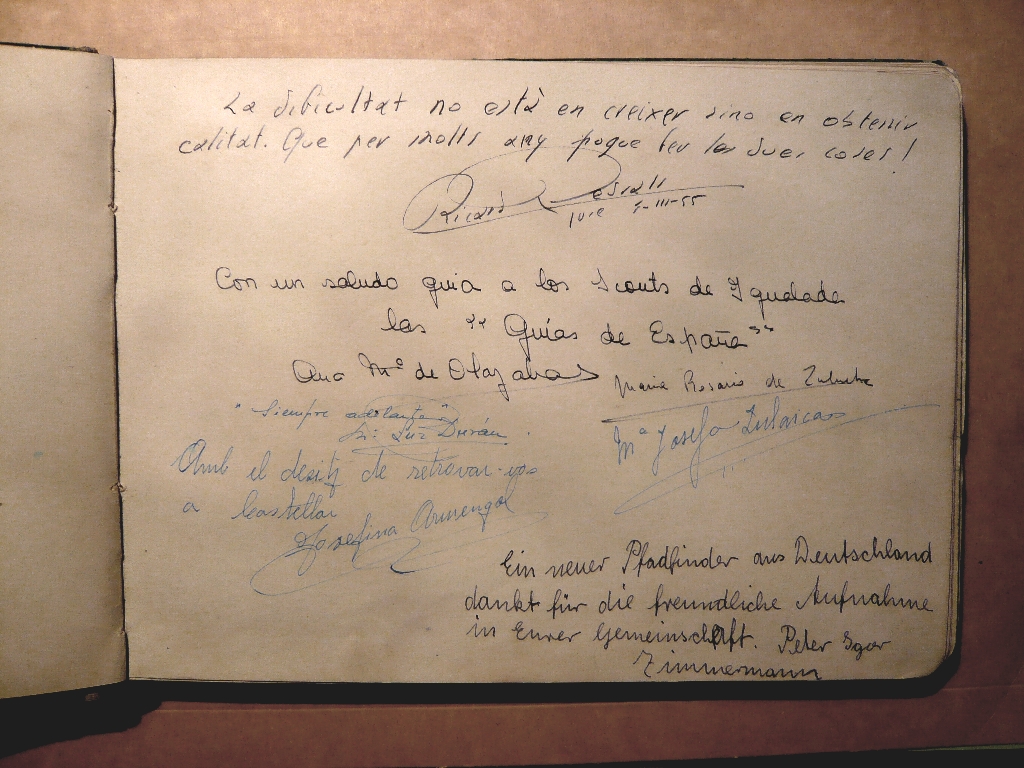 La dificultat no està en créixer sino en obtenir
calitat. Que per molts any pogue fer les dues coses!
Ricard
5-III-55
Con un saludo guia a los Scouts de Igualada
las "Guías de España"
Ana Mª de Olazabal
Maria Rosario de
"Siempre adelante"
Luz Durán
Mª Josefa
Amb el desitj de retrovar-vos
a Castellar
Josefina Armengol
Ein neuer Pfadfinder aus Deutschland
dankt für die freundliche Aufnahme
in Eurer Gemeinschaft. Peter Igor
Zimmermann